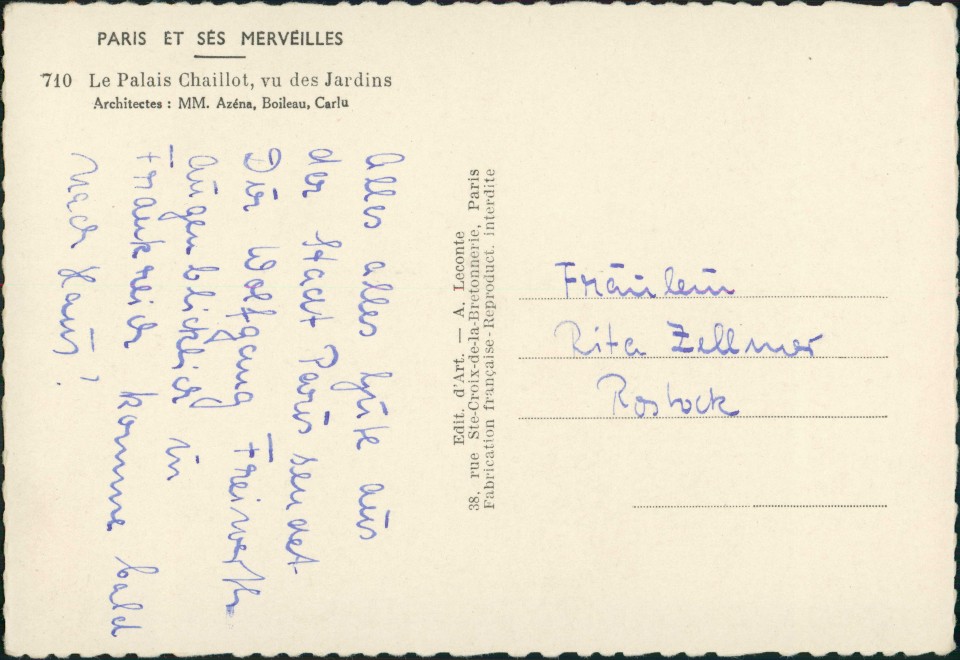 PARIS ET SES MERVEILLES
710 Le Palais Chaillot, vu des Jardins
Architectes : MM. Azéna, Boileau, Carlu
Alles alles gute aus
der Stadt Paris sendet
Dir Wolfgang Freiwerth
Augenblicklich in
Frankreich komme bald
nach Haus!
Edit. d'Art. — A. Leconte
38, rue Ste-Croix-de-la-Bretonnerie, Paris
Fabrication française - Reproduct. interdite
Fräulein
Rita Zellmer
Rostock